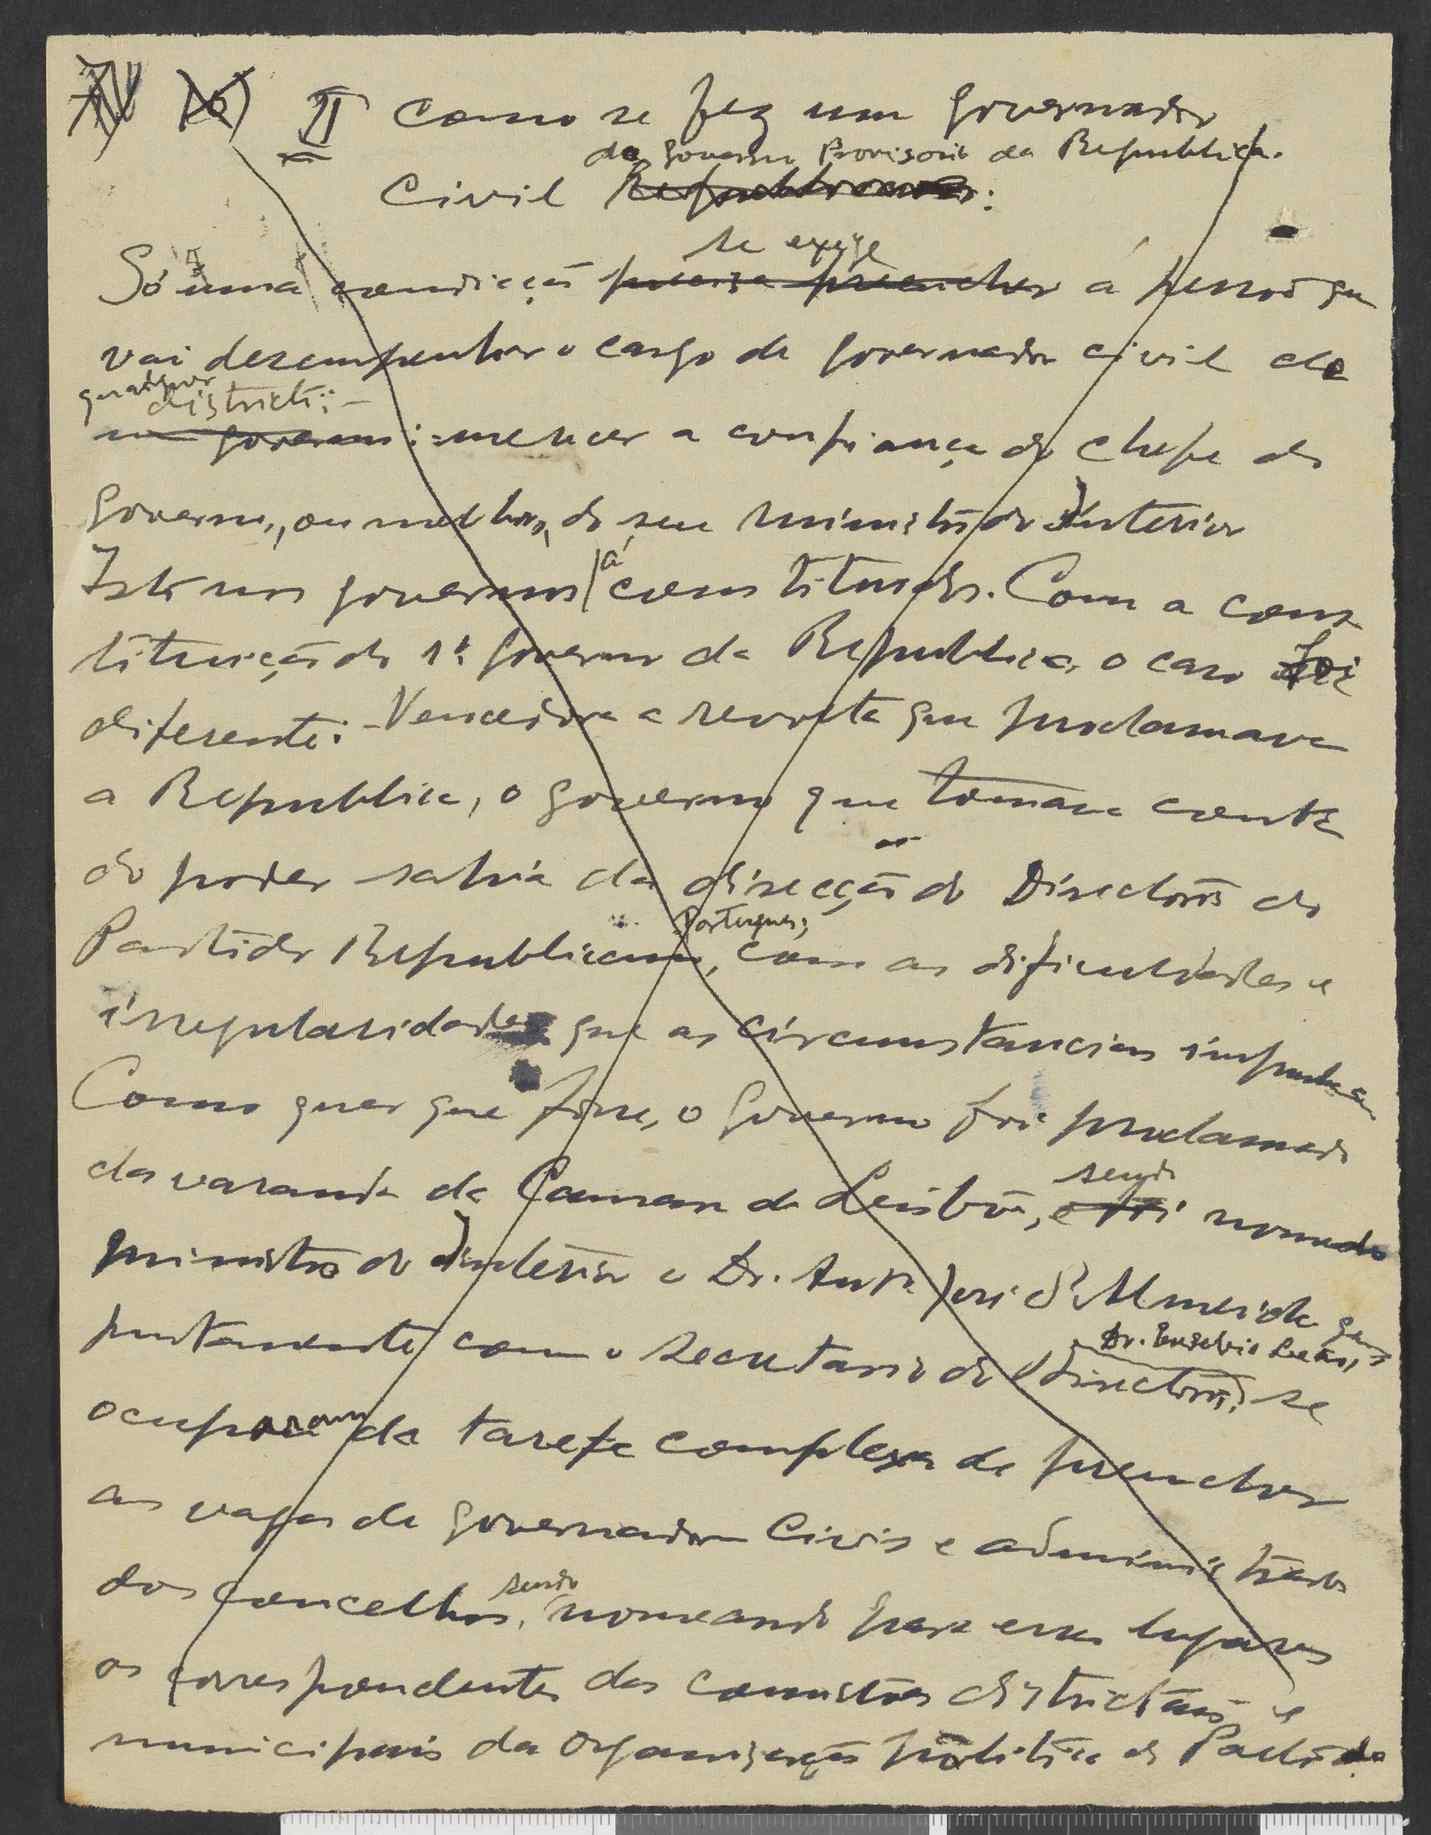 II Como se fez um Governador
do Governo Provisorio da Republica.
Civil Republicano:
se exige
Só uma condicção precisa preencher á pessoa que
vai desempenhar o cargo de governador civil de
qualquer
districto:-
um governo: merecer a confiança do chefe do
Governo, ou melhor, do seu ministro do Interior
Isto nos governos já constituidos. Com a cons-
tituição do 1º Governo da Republica, o caso foi
diferente: - Vencedora a revolta que proclamava
a Republica, o governo que tomava conta
do poder sahia da direcção do Directorio do
Portuguez
Partido Republicano, com as dificuldades e
irregularidades que as circumstancias impunham
Como quer que fosse, o Governo foi proclamado
da varanda da Camara de Lisboa,
sendo
e foi nomeado
Ministro do Interior o Dr. Antº José d'Almeida que
juntamente com o secretario do Directorio,
Dr. Eusebio Leão,
se
ocuparam da tarefa complexa de preencher
as vagas de governadores Civis e administradores
dos concelhos,
sendo
nomeando para esses lugares
os correspondentes das comissões districtais e
municipais da organização politica do Partido